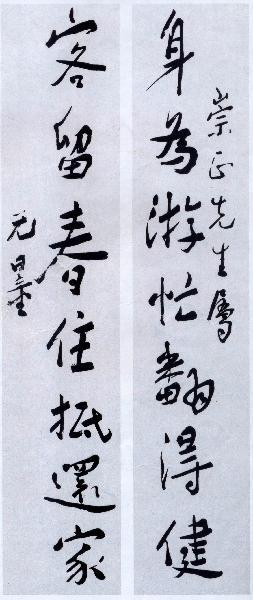 崇正先生属
身為游忙翻得健
客留春住抵還家
尤墨